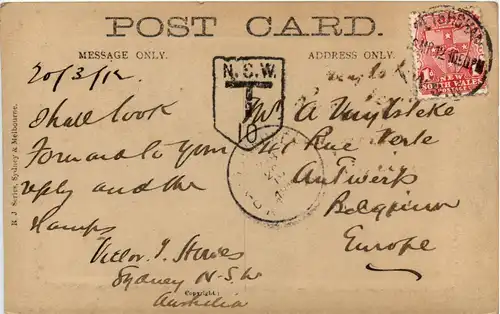 POST CARD.
MESSAGE ONLY.
ADDRESS ONLY.
20/3/12
Shall look
Forward to your
reply and the
Stamps
Victor. J.
Sydney N.S.W
Australia
N.S.W.
T
10
Mr A
Rue Verte
Antwerp
Belgium
Europe
1D
NEW
SOUTH WALES
POSTAGE
R. J. Series, Sydney & Melbourne.
Copyright: